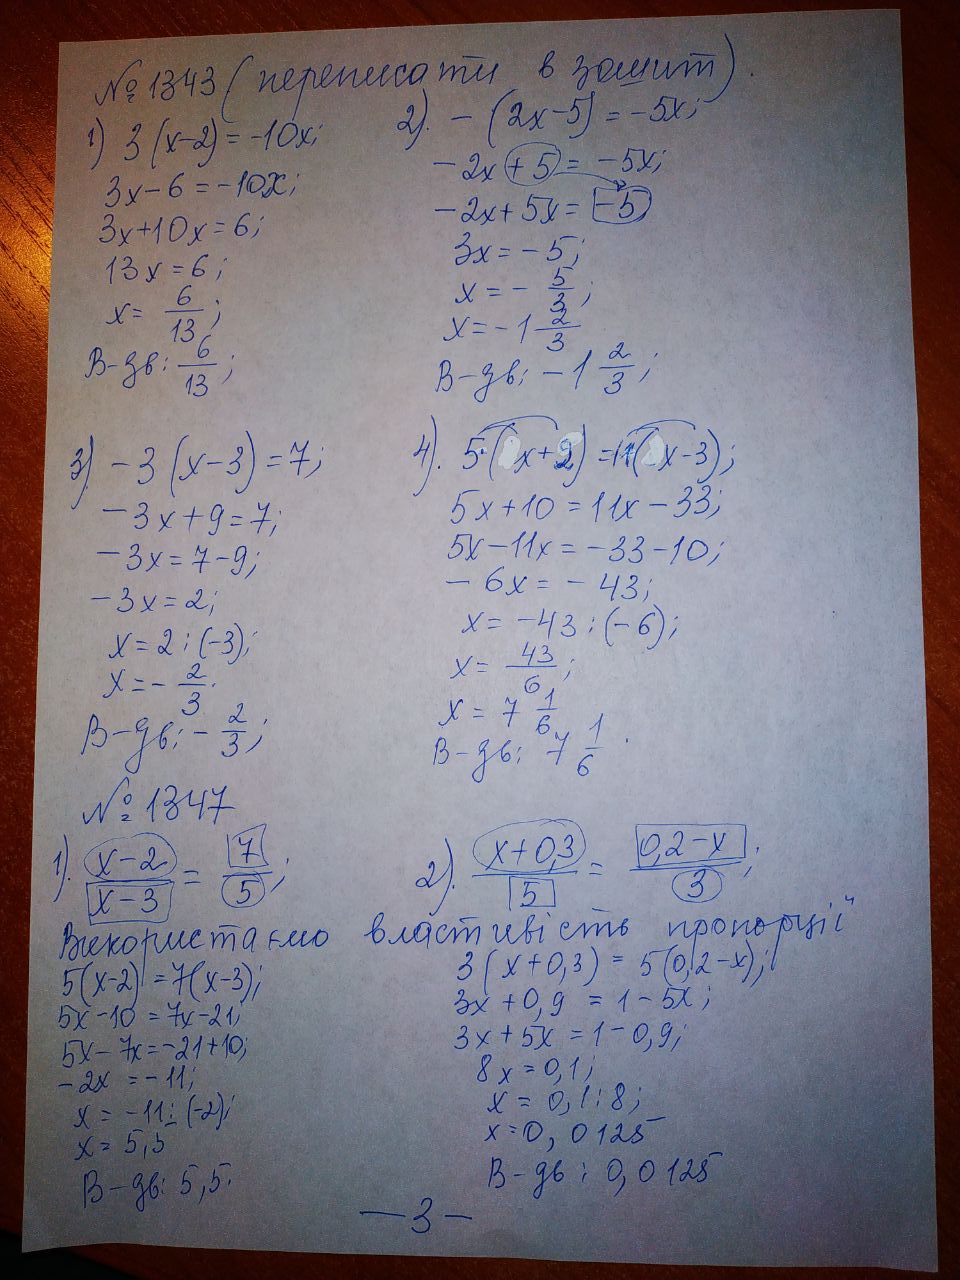 № 1343 (переписати в зошит).
1) 3(x-2)=-10x;
3x-6=-10x;
3x+10x=6;
13x=6;
x= 6/13;
В-дь: 6/13;
2). -(2x-5)=-5x;
-2x+5=-5x;
-2x+5x=-5
3x=-5;
x=- 5/3;
x=-1 2/3
В-дь: -1 2/3;
3) -3(x-3)=7;
-3x+9=7;
-3x=7-9;
-3x=2;
x=2:(-3);
x=- 2/3.
В-дь: - 2/3;
4). 5·(x+2)=11·(x-3);
5x+10=11x-33;
5x-11x=-33-10;
-6x=-43;
x=-43:(-6);
x= 43/6;
x=7 1/6
В-дь: 7 1/6.
№ 1347
1). x-2/x-3 = 7/5;
2). x+0,3/5 = 0,2-x/3;
Використаємо властивість пропорції
5(x-2)=7(x-3);
5x-10=7x-21;
5x-7x=-21+10;
-2x=-11;
x=-11:(-2);
x=5,5
В-дь: 5,5.
3(x+0,3)=5(0,2-x);
3x+0,9=1-5x;
3x+5x=1-0,9;
8x=0,1;
x=0,1:8;
x=0,0125
В-дь: 0,0125
-3-